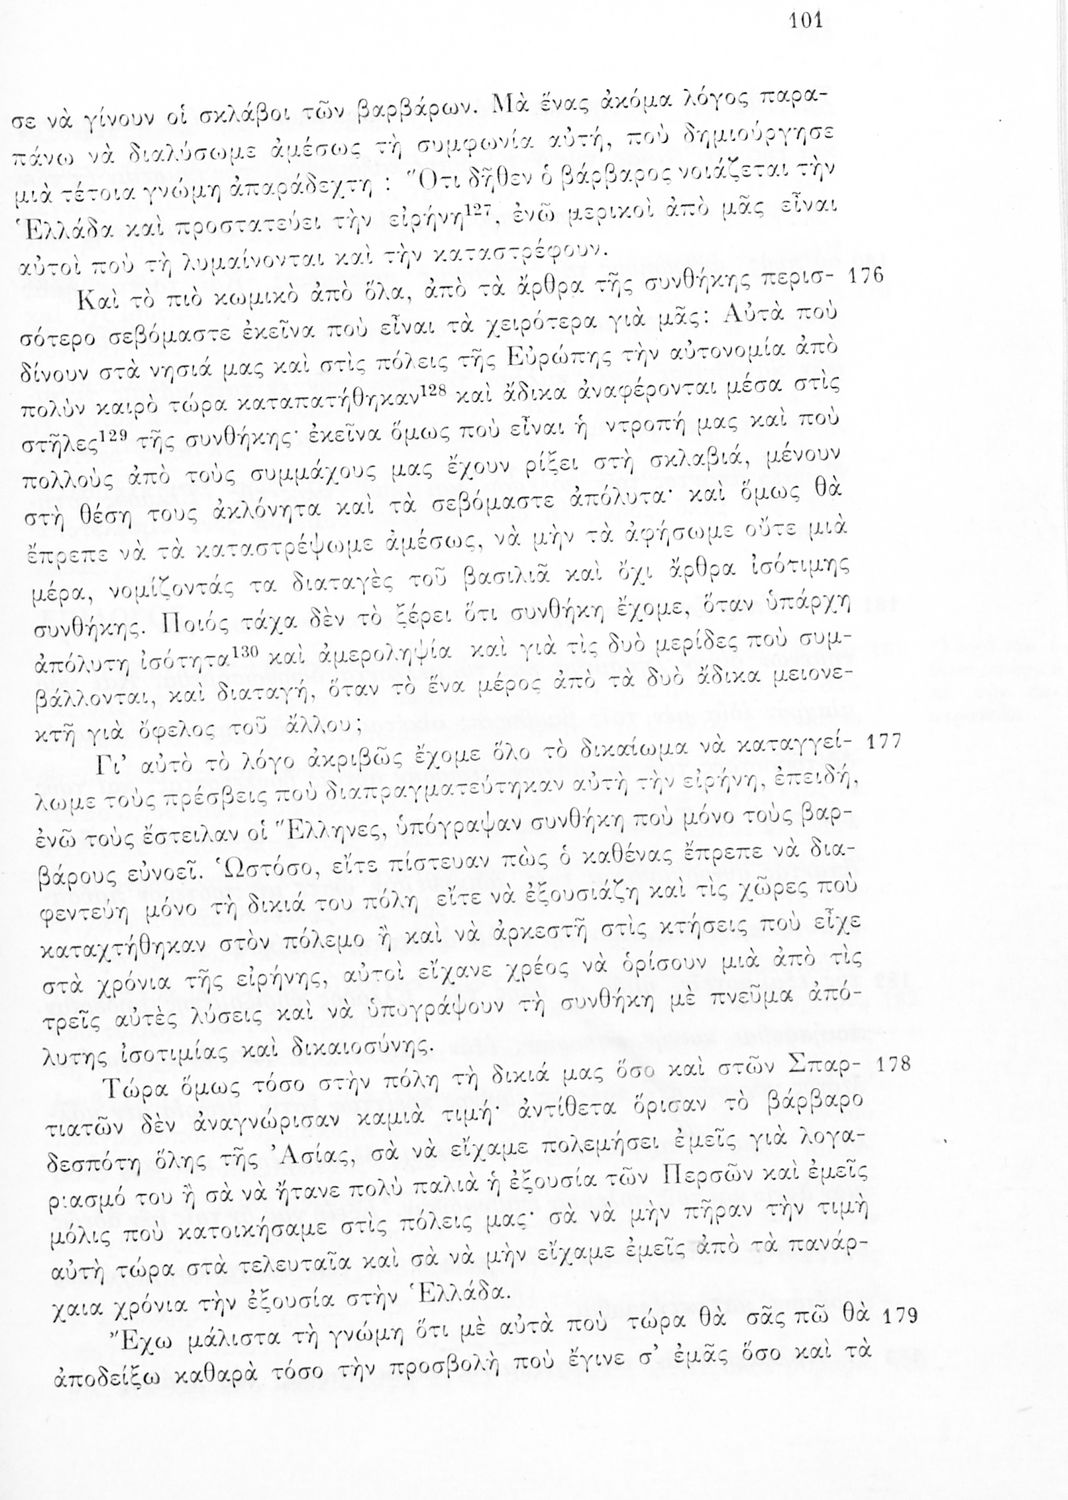 101
σε νὰ γίνουν οἱ σκλάβοι τῶν βαρβάρων. Μὰ ἕνας ἀκόμα λόγος παρα-
πάνω νὰ διαλύσωμε ἀμέσως τὴ συμφωνία αὐτή, ποὺ δημιούργησε
μιὰ τέτοια γνώμη ἀπαράδεχτη : Ὅτι δῆθεν ὁ βάρβαρος νοιάζεται τὴν
Ἑλλάδα καὶ προστατεύει τὴν εἰρήνη¹²⁷, ἐνῶ μερικοὶ ἀπὸ μᾶς εἶναι
αὐτοὶ ποὺ τὴ λυμαίνονται καὶ τὴν καταστρέφουν.
Καὶ τὸ πιὸ κωμικὸ ἀπὸ ὅλα, ἀπὸ τὰ ἄρθρα τῆς συνθήκης περισ- 176
σότερο σεβόμαστε ἐκεῖνα ποὺ εἶναι τὰ χειρότερα γιὰ μᾶς: Αὐτὰ ποὺ
δίνουν στὰ νησιά μας καὶ στὶς πόλεις τῆς Εὐρώπης τὴν αὐτονομία ἀπὸ
πολὺν καιρὸ τώρα καταπατήθηκαν¹²⁸ καὶ ἄδικα ἀναφέρονται μέσα στὶς
στῆλες¹²⁹ τῆς συνθήκης· ἐκεῖνα ὅμως ποὺ εἶναι ἡ ντροπή μας καὶ ποὺ
πολλοὺς ἀπὸ τοὺς συμμάχους μας ἔχουν ρίξει στὴ σκλαβιά, μένουν
στὴ θέση τους ἀκλόνητα καὶ τὰ σεβόμαστε ἀπόλυτα· καὶ ὅμως θὰ
ἔπρεπε νὰ τὰ καταστρέψωμε ἀμέσως, νὰ μὴν τὰ ἀφήσωμε οὔτε μιὰ
μέρα, νομίζοντάς τα διαταγὲς τοῦ βασιλιᾶ καὶ ὄχι ἄρθρα ἰσότιμης
συνθήκης. Ποιός τάχα δὲν τὸ ξέρει ὅτι συνθήκη ἔχομε, ὅταν ὑπάρχη
ἀπόλυτη ἰσότητα¹³⁰ καὶ ἀμεροληψία καὶ γιὰ τὶς δυὸ μερίδες ποὺ συμ-
βάλλονται, καὶ διαταγή, ὅταν τὸ ἕνα μέρος ἀπὸ τὰ δυὸ ἄδικα μειονε-
κτῆ γιὰ ὄφελος τοῦ ἄλλου;
Γι' αὐτὸ τὸ λόγο ἀκριβῶς ἔχομε ὅλο τὸ δικαίωμα νὰ καταγγεί- 177
λωμε τοὺς πρέσβεις ποὺ διαπραγματεύτηκαν αὐτὴ τὴν εἰρήνη, ἐπειδή,
ἐνῶ τοὺς ἔστειλαν οἱ Ἕλληνες, ὑπόγραψαν συνθήκη ποὺ μόνο τοὺς βαρ-
βάρους εὐνοεῖ. Ὡστόσο, εἴτε πίστευαν πὼς ὁ καθένας ἔπρεπε νὰ δια-
φεντεύη μόνο τὴ δικιά του πόλη εἴτε νὰ ἐξουσιάζη καὶ τὶς χῶρες ποὺ
καταχτήθηκαν στὸν πόλεμο ἢ καὶ νὰ ἀρκεστῆ στὶς κτήσεις ποὺ εἶχε
στὰ χρόνια τῆς εἰρήνης, αὐτοὶ εἴχανε χρέος νὰ ὁρίσουν μιὰ ἀπὸ τὶς
τρεῖς αὐτὲς λύσεις καὶ νὰ ὑπογράψουν τὴ συνθήκη μὲ πνεῦμα ἀπό-
λυτης ἰσοτιμίας καὶ δικαιοσύνης.
Τώρα ὅμως τόσο στὴν πόλη τὴ δικιά μας ὅσο καὶ στῶν Σπαρ- 178
τιατῶν δὲν ἀναγνώρισαν καμιὰ τιμή· ἀντίθετα ὅρισαν τὸ βάρβαρο
δεσπότη ὅλης τῆς Ἀσίας, σὰ νὰ εἴχαμε πολεμήσει ἐμεῖς γιὰ λογα-
ριασμό του ἢ σὰ νὰ ἤτανε πολὺ παλιὰ ἡ ἐξουσία τῶν Περσῶν καὶ ἐμεῖς
μόλις ποὺ κατοικήσαμε στὶς πόλεις μας· σὰ νὰ μὴν πῆραν τὴν τιμὴ
αὐτὴ τώρα στὰ τελευταῖα καὶ σὰ νὰ μὴν εἴχαμε ἐμεῖς ἀπὸ τὰ πανάρ-
χαια χρόνια τὴν ἐξουσία στὴν Ἑλλάδα.
Ἔχω μάλιστα τὴ γνώμη ὅτι μὲ αὐτὰ ποὺ τώρα θὰ σᾶς πῶ θὰ 179
ἀποδείξω καθαρὰ τόσο τὴν προσβολὴ ποὺ ἔγινε σ' ἐμᾶς ὅσο καὶ τὰ